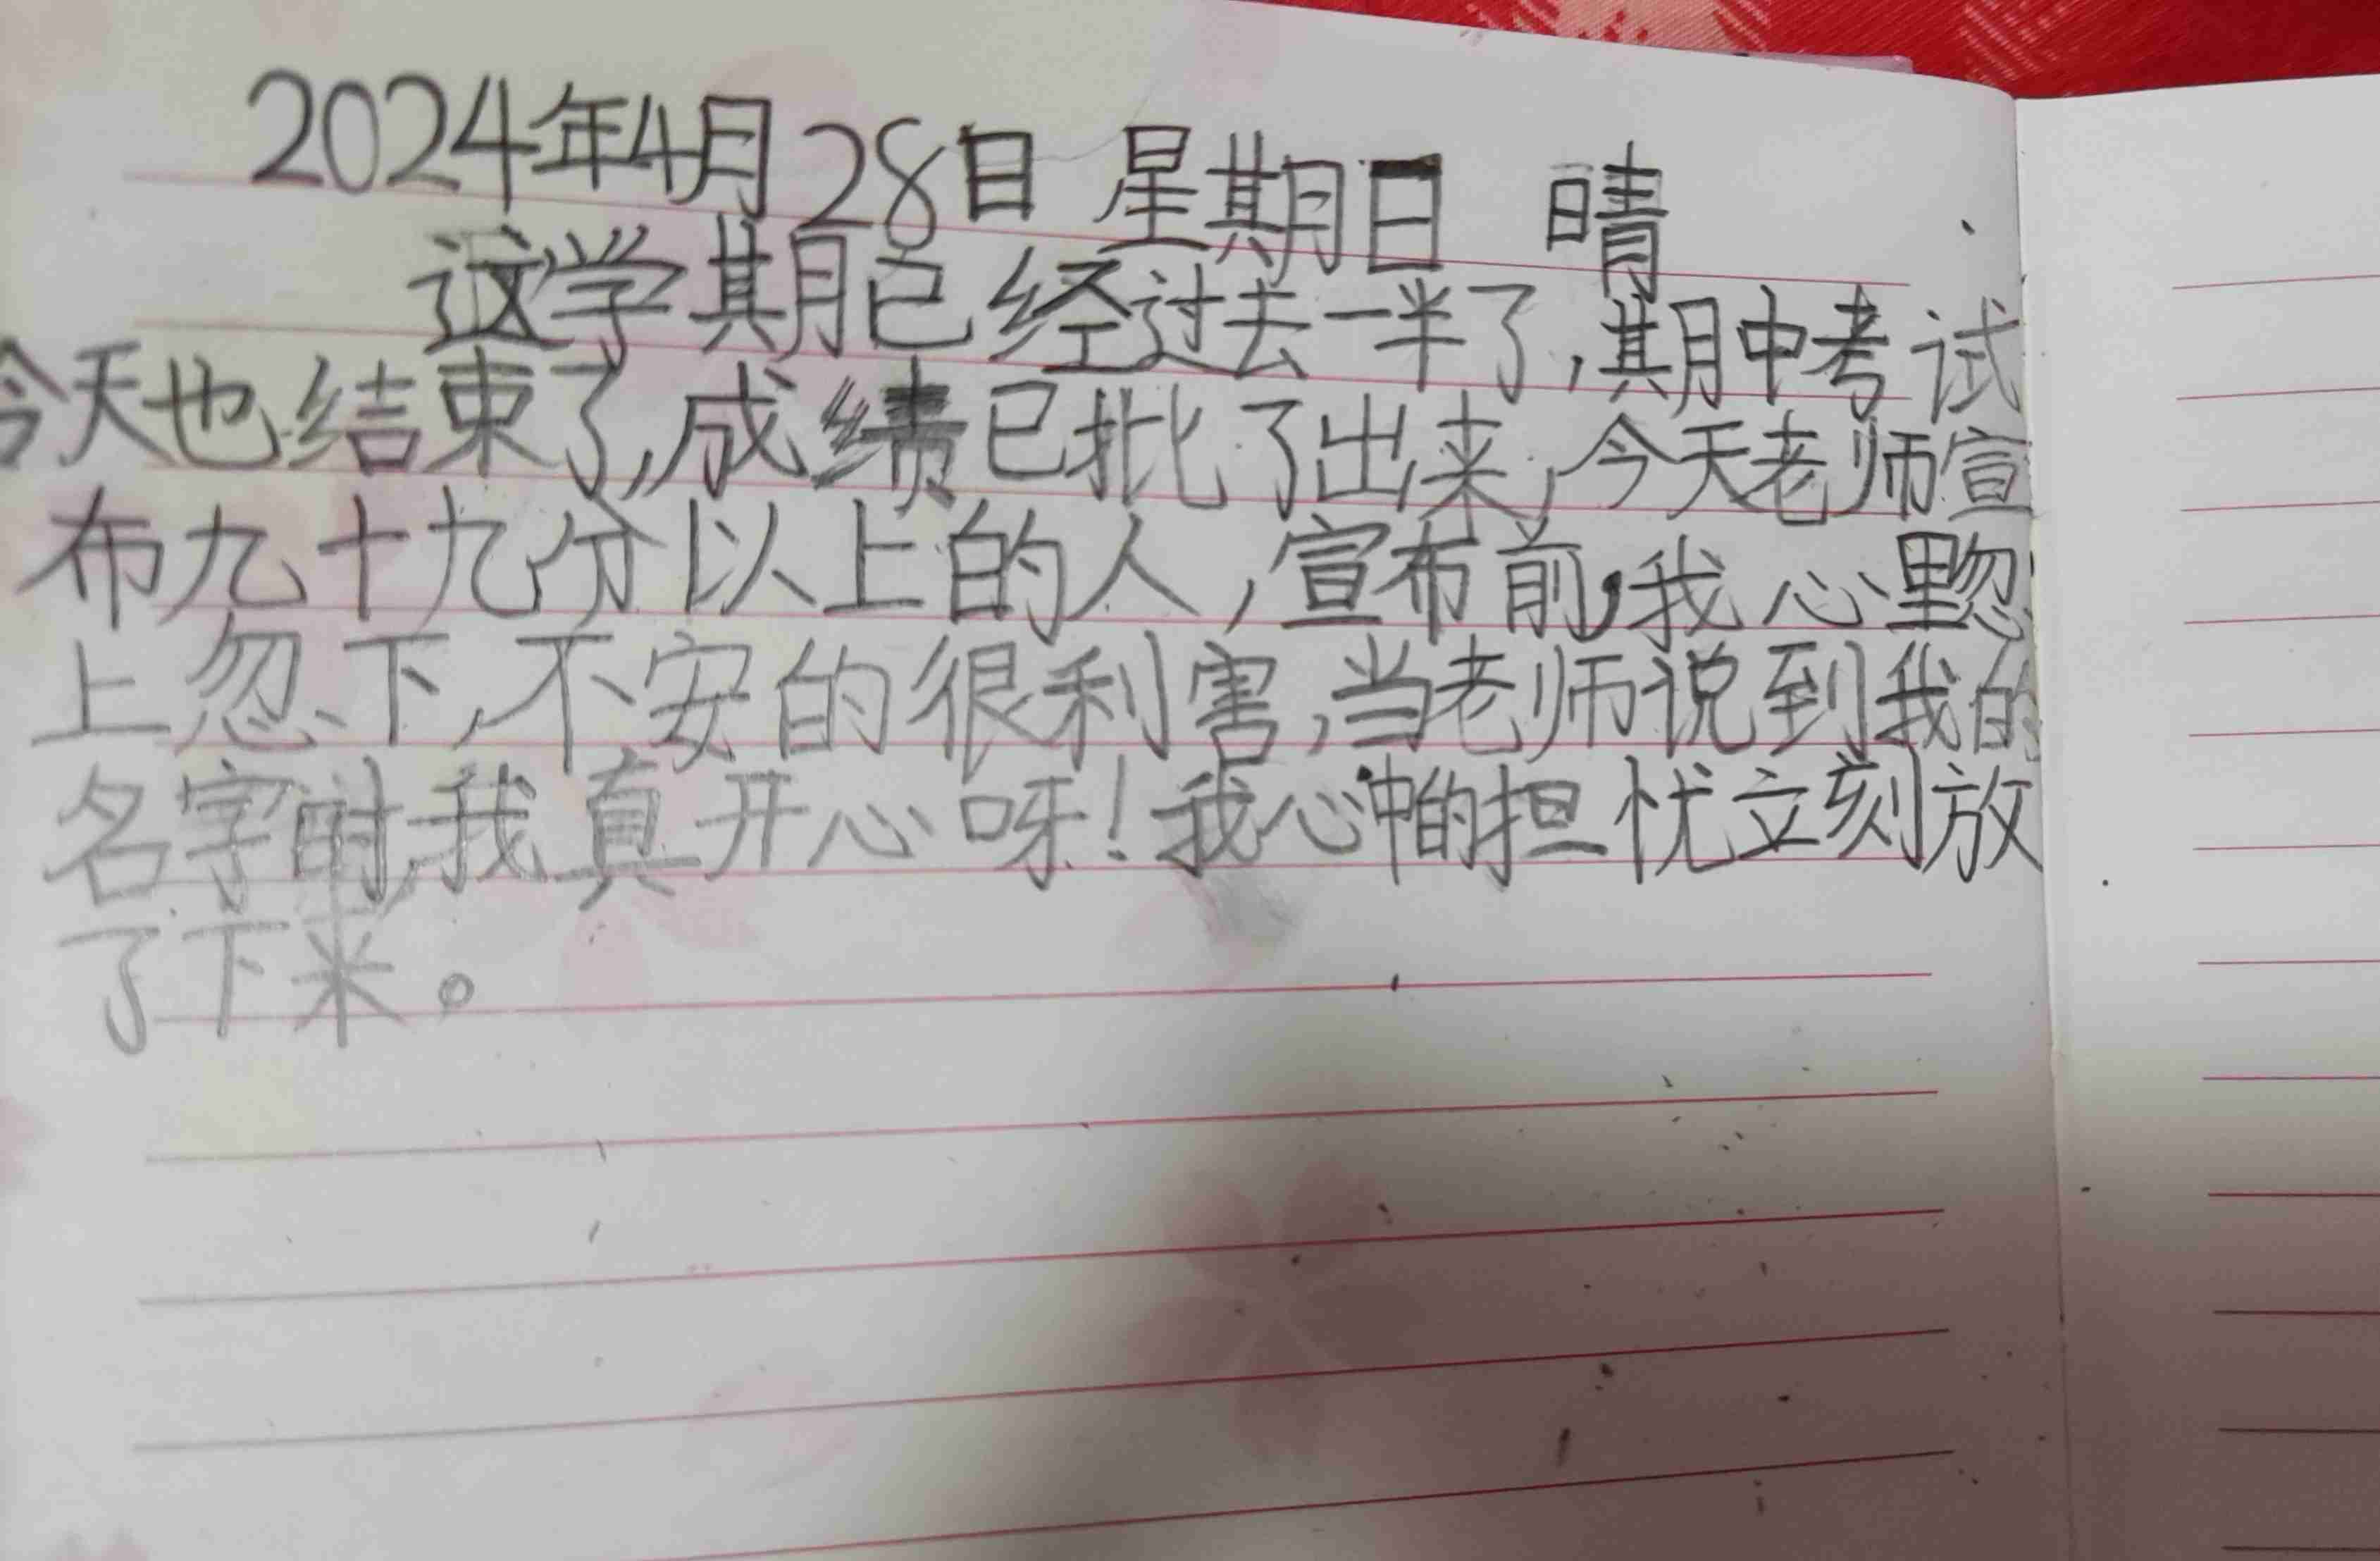 2024年4月28日 星期日 晴
这学期已经过去一半了,期中考试
今天也结束了,成绩已批了出来,今天老师宣
布九十九分以上的人,宣布前,我心里忽
上忽下,不安的很利害,当老师说到我的
名字时,我真开心呀!我心中的担忧立刻放
了下来。